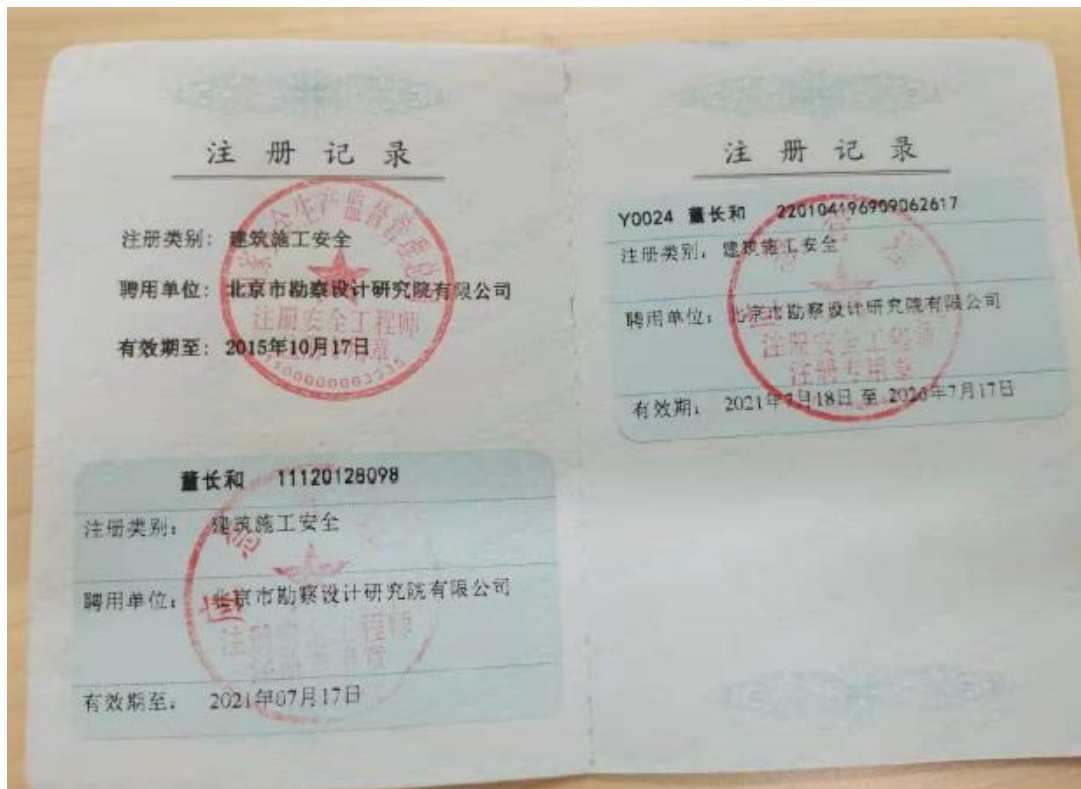 注册记录
注册类别：建筑施工安全
聘用单位：北京市勘察设计研究院有限公司
有效期至：2015年10月17日
注册安全工程师
董长和 11120128098
注册类别：建筑施工安全
聘用单位：北京市勘察设计研究院有限公司
有效期至：2021年07月17日
注册记录
Y0024 董长和 220104196909062617
注册类别：建筑施工安全
聘用单位：北京市勘察设计研究院有限公司
注册安全工程师
注册专用章
有效期：2021年7月18日 至 2026年7月17日